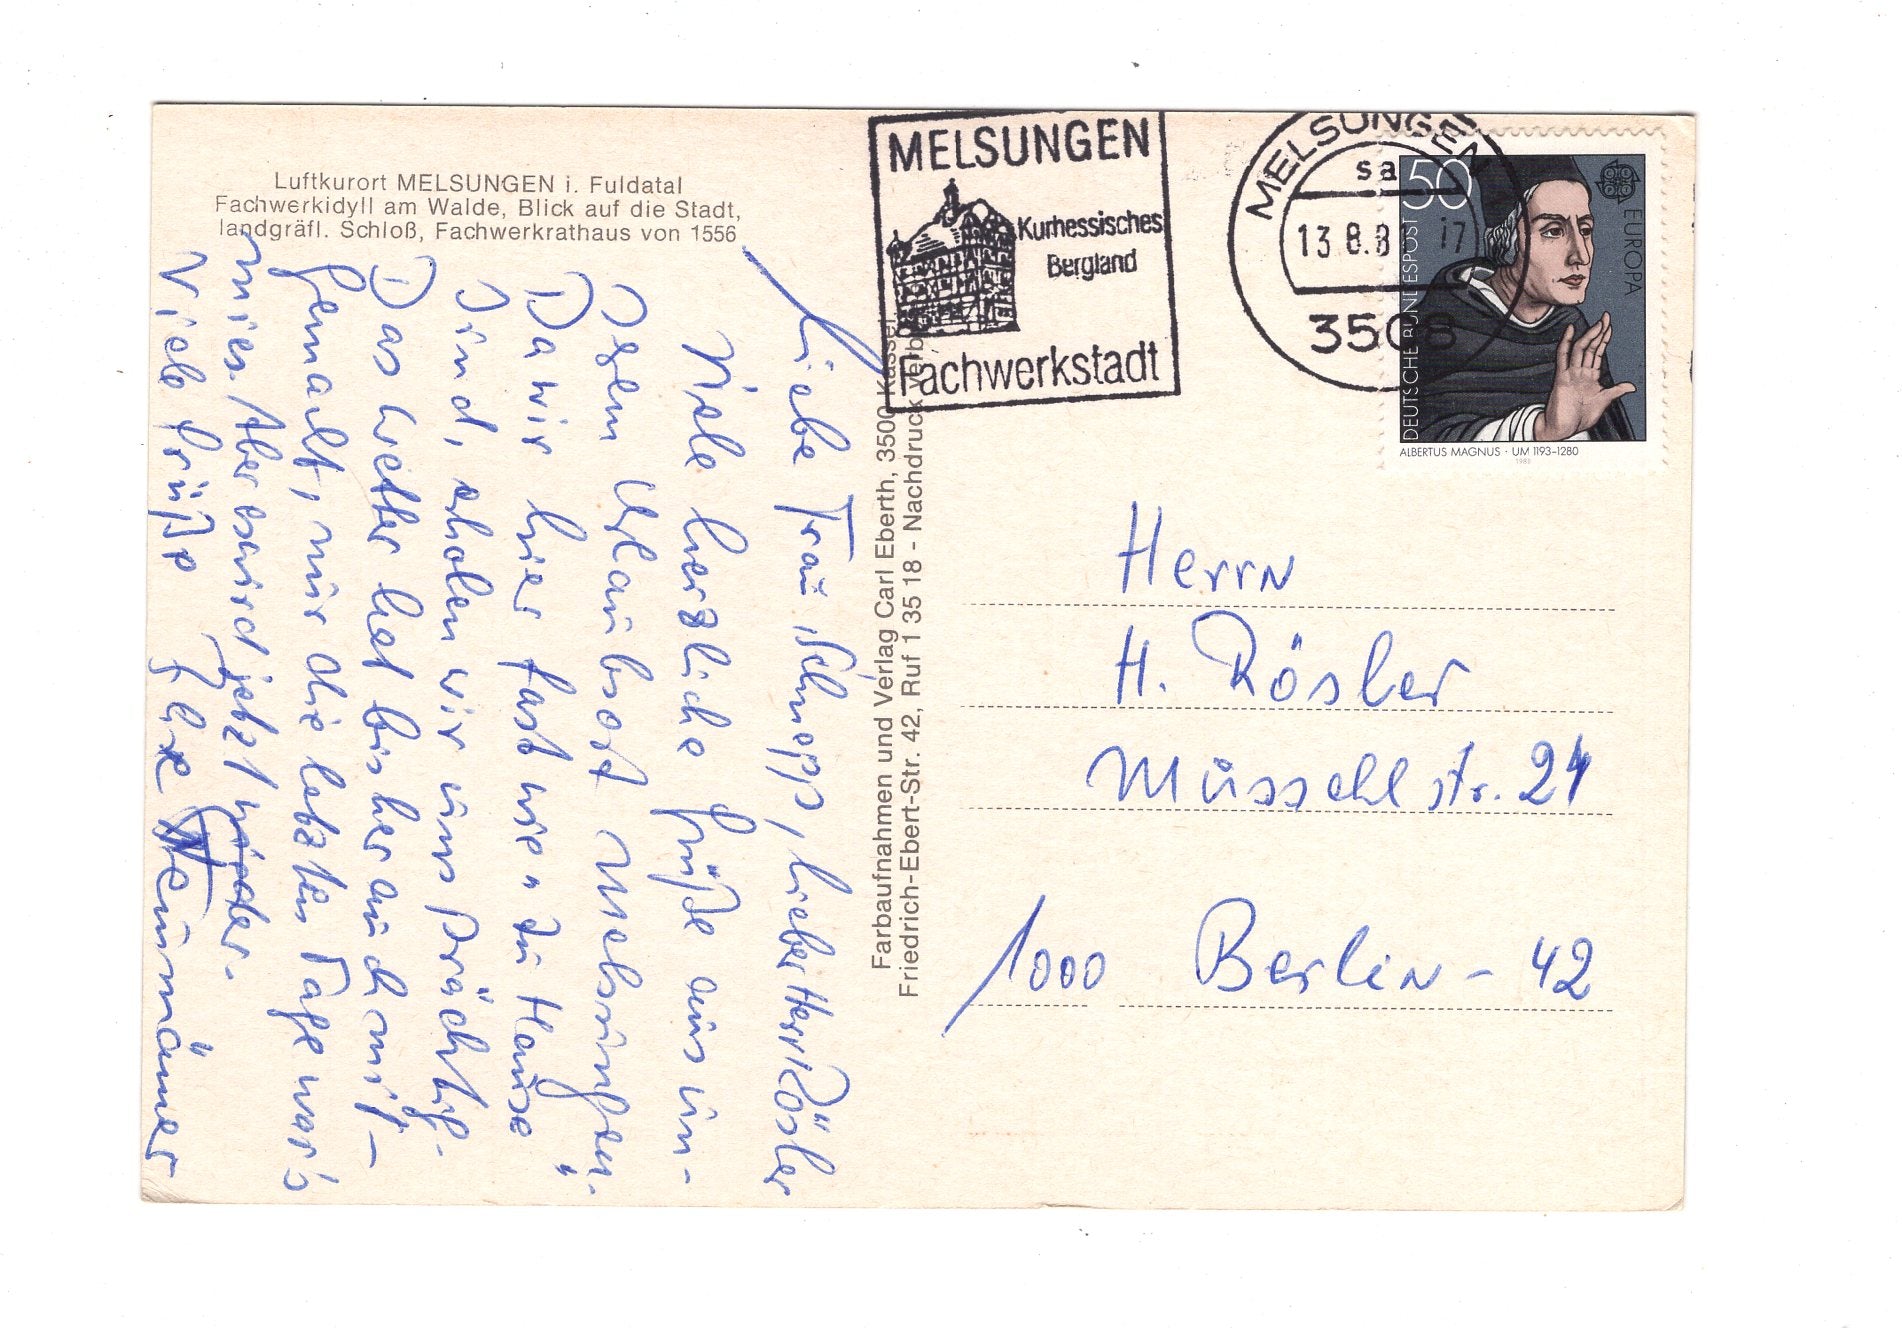 Luftkurort MELSUNGEN i. Fuldatal
Fachwerkidyll am Walde, Blick auf die Stadt,
landgräfl. Schloß, Fachwerkrathaus von 1556
Liebe Frau Schnepp, lieber Herr Rösler
Viele herzliche Grüße aus un-
serem Urlaubsort Melsungen.
Da wir hier fast wie "zu Hause"
sind, erholen wir uns prächtig.
Das Wetter hat bisher auch mit-
gemacht, nur die letzten Tage war's
mies. Aber es wird jetzt wieder.
Viele Grüße Ihre
Farbaufnahmen und Verlag Carl Eberth, 3500 Kassel
Friedrich-Ebert-Str. 42, Ruf 1 35 18 - Nachdruck verb
MELSUNGEN
Kurhessisches
Bergland
Fachwerkstadt
MELSUNGEN
sa
13.8.81 17
3508
50
EUROPA
DEUTSCHE BUNDESPOST
ALBERTUS MAGNUS · UM 1193-1280
1980
Herrn
H. Rösler
Müssehlstr. 21
1000 Berlin - 42